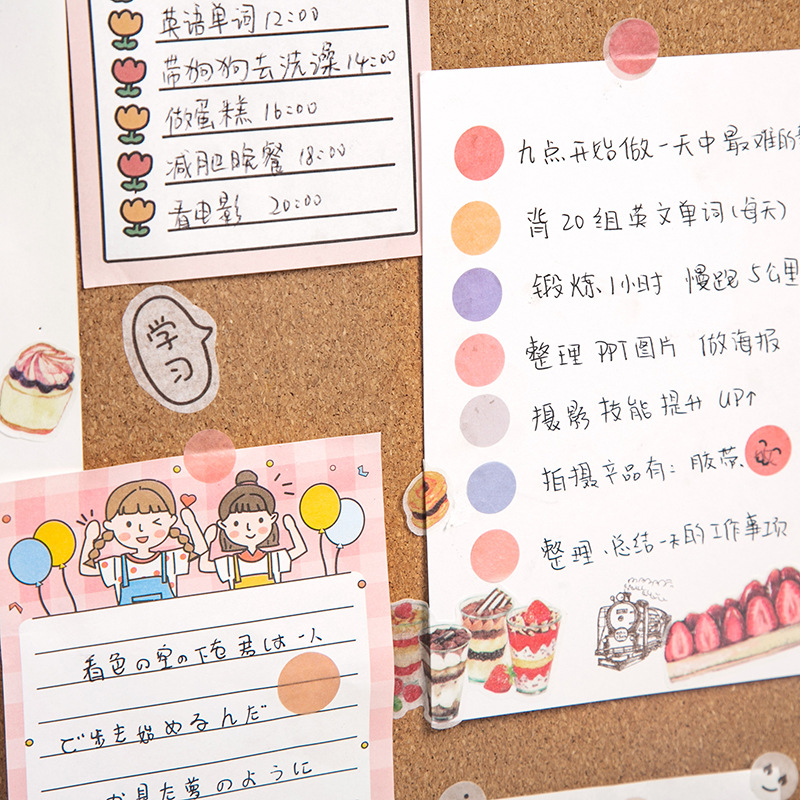 英语单词 12:00
带狗狗去洗澡 14:00
做蛋糕 16:00
减肥晚餐 18:00
看电影 20:00
学习
九点开始做一天中最难的
背 20 组英文单词(每天)
锻炼 1小时 慢跑 5公里
整理 PPT图片 做海报
摄影技能提升 UP↑
拍摄产品有: 胶带、
整理、总结一天的工作事项
着色の空の下を君は一人
で歩き始めるんだ
見た夢のように